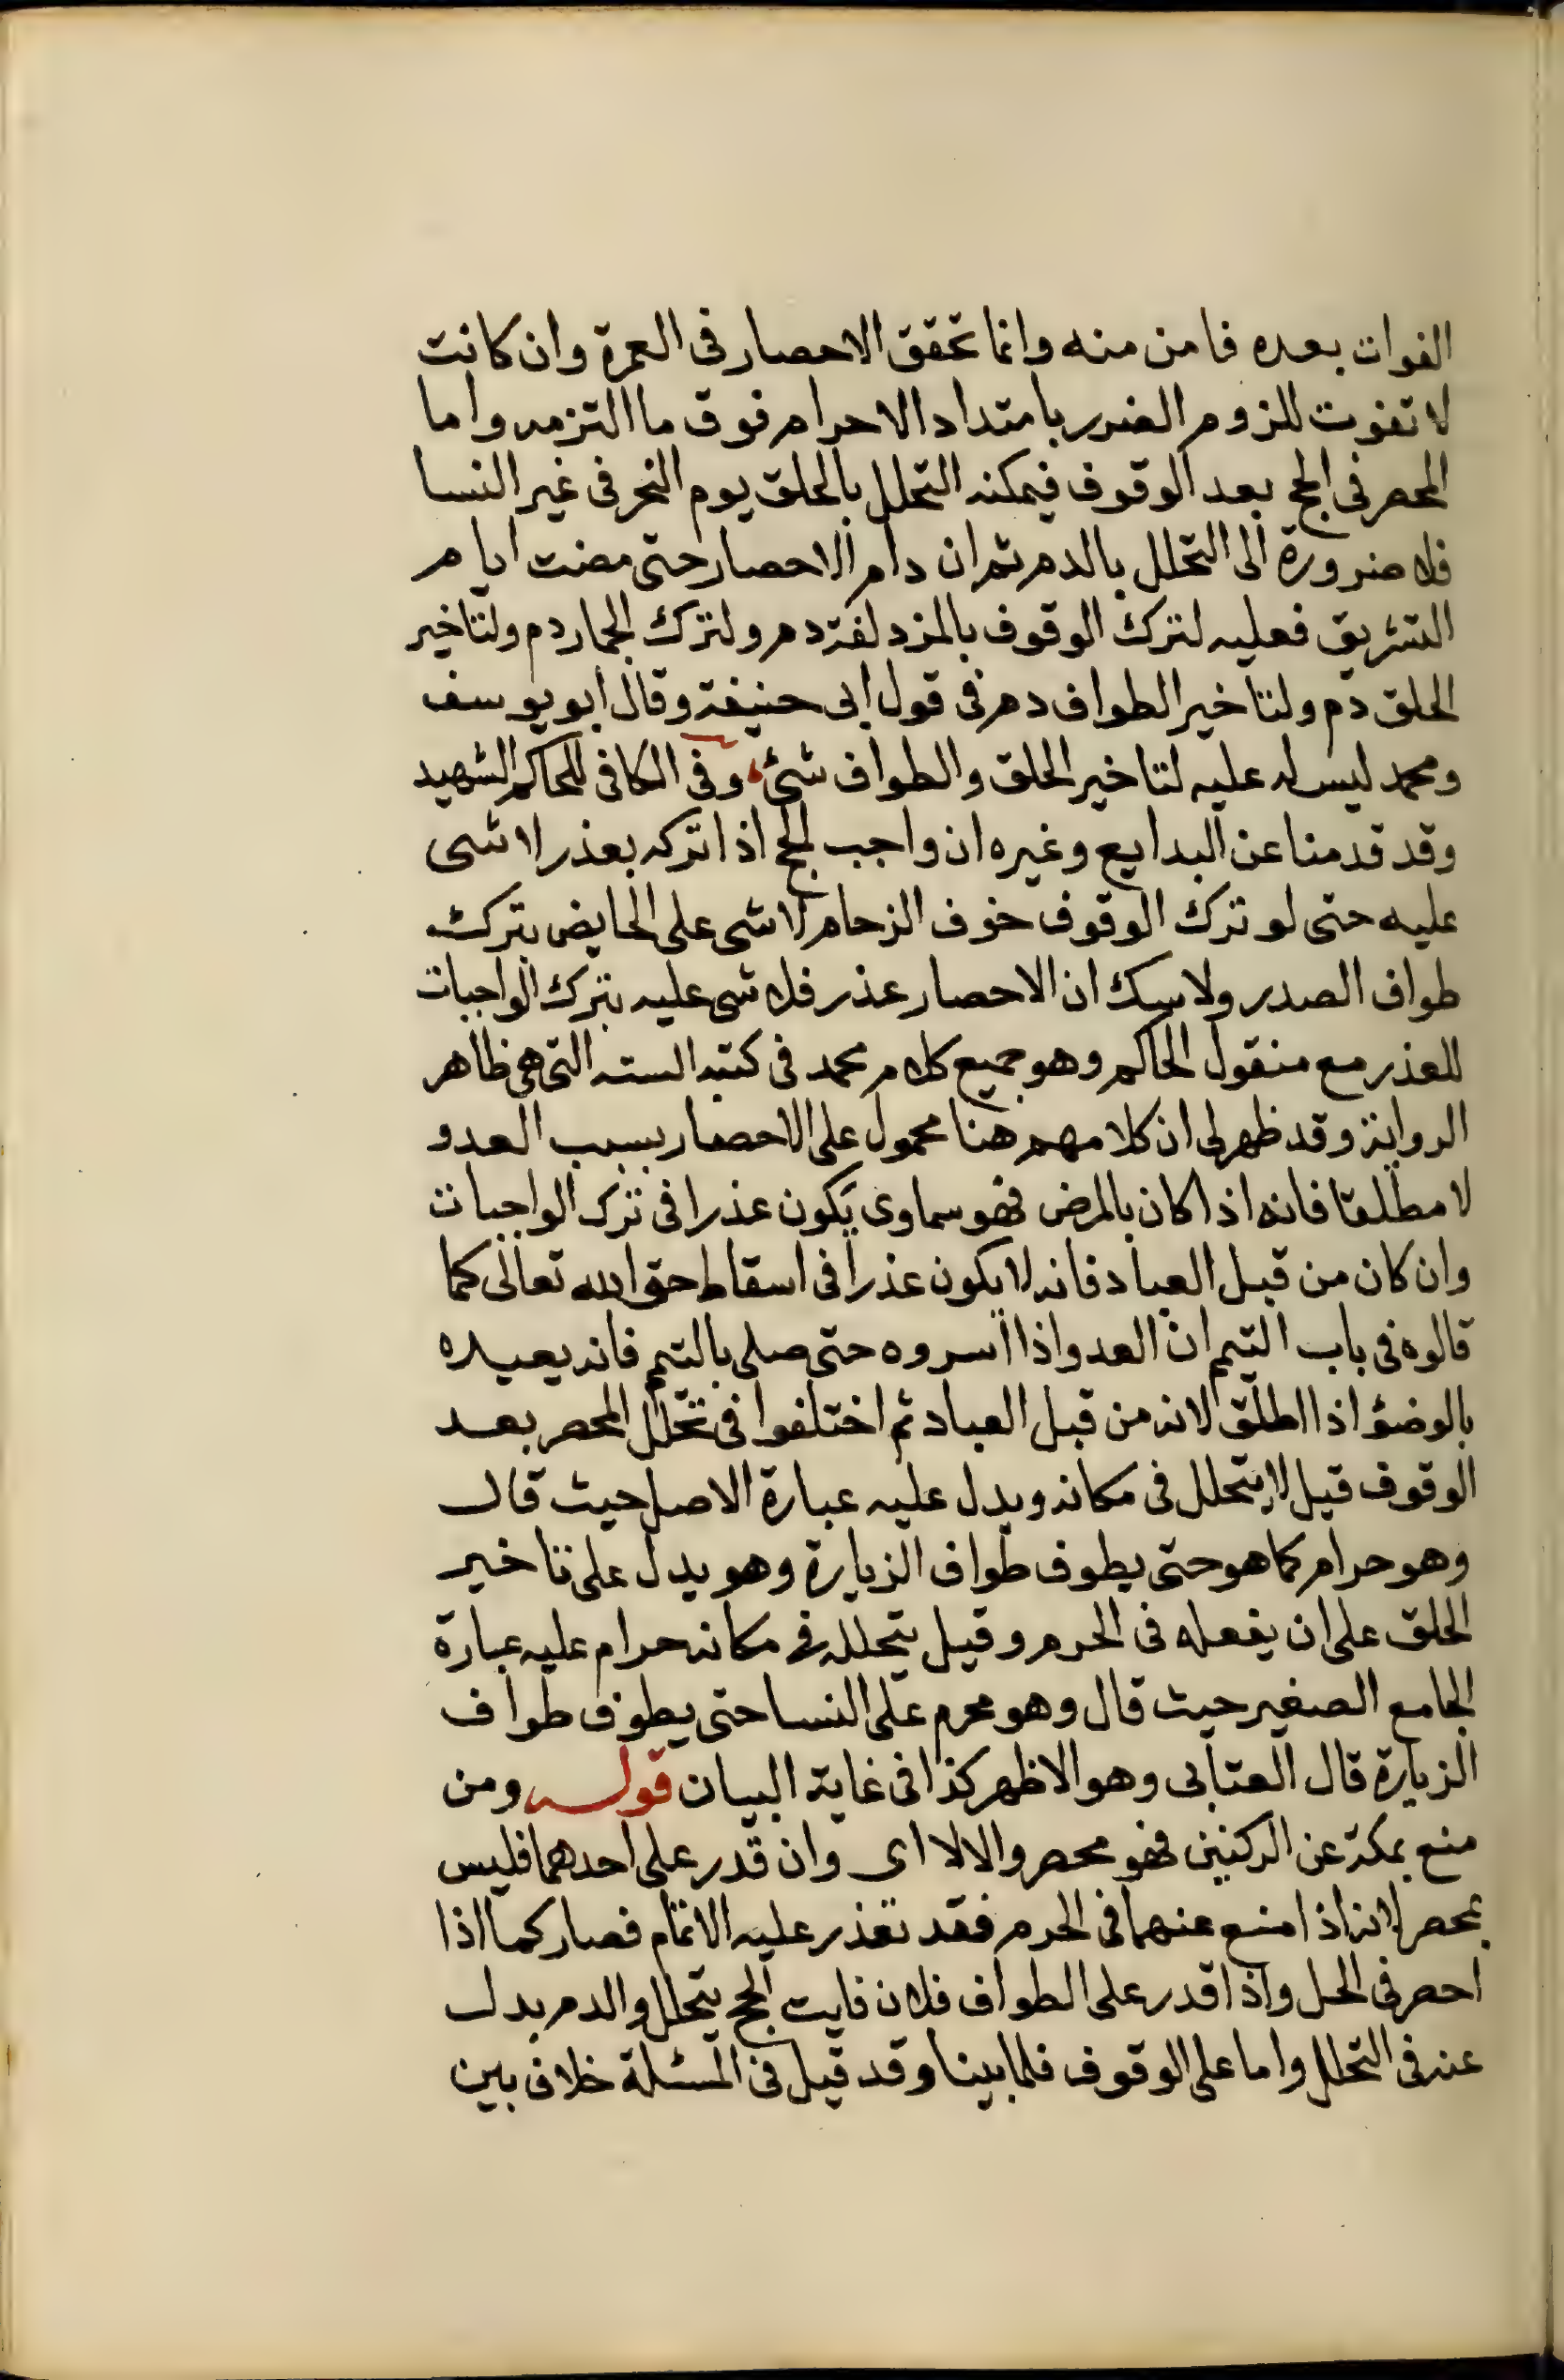 الفوات بعده فامن منه وانما تحقق الاحصار فى العمرة وان كانت
لا تفوت للزوم الضرر بامتداد الاحرام فوق ما التزمه واما
المحصر فى الحج بعد الوقوف فيمكنه التحلل بالحلق يوم النحر فى غير النسا
فلا ضرورة الى التحلل بالدم ثم ان دام الاحصار حتى مضت ايام
التشريق فعليه لترك الوقوف بالمزدلفة دم ولترك الجمار دم ولتاخير
الحلق دم ولتاخير الطواف دم فى قول ابى حنيفة وقال ابو يوسف
ومحمد ليس له عليه لتاخير الحلق والطواف شئ وفى الكافى للحاكم الشهيد
وقد قدمنا عن البدايع وغيره ان واجب الحج اذا تركه بعذر لا شى
عليه حتى لو ترك الوقوف خوف الزحام لا شى على الحايض بترك
طواف الصدر ولا سك ان الاحصار عذر فلا شى عليه بترك الواجبات
للعذر مع منقول الحاكم وهو جميع كلام محمد فى كتبه السته التى هى ظاهر
الرواية وقد ظهر لى ان كلامهم هنا محمول على الاحصار بسبب العدو
لا مطلقا فانه اذا كان بالمرض فهو سماوى يكون عذرا فى ترك الواجبات
وان كان من قبل العباد فانه لا يكون عذرا فى اسقاط حق الله تعالى كما
قالوه فى باب التيمم ان العدو اذا اسروه حتى صلى بالتيمم فانه يعيده
بالوضؤ اذا اطلق لانه من قبل العباد ثم اختلفوا فى تحلل المحصر بعد
الوقوف قيل لا يتحلل فى مكانه ويدل عليه عبارة الاصل حيث قال
وهو حرام كما هو حتى يطوف طواف الزيارة وهو يدل على تاخير
الحلق على ان يفعله فى الحرم وقيل يتحلله فى مكانه حرام عليه عبارة
الجامع الصغير حيث قال وهو محرم على النسا حتى يطوف طواف
الزيارة قال العتابى وهو الاظهر كذا فى غاية البيان قوله ومن
منع بمكة عن الركنين فهو محصر والا لا اى وان قدر على احدهما فليس
بمحصر لانه اذا منع عنهما فى الحرم فقد تعذر عليه الاتمام فصار كما اذا
احصر فى الحل واذا قدر على الطواف فلان فايت الحج يتحلل والدم بدل
عنه فى التحلل واما على الوقوف فلما بينا وقد قيل فى المسئلة خلاف بين